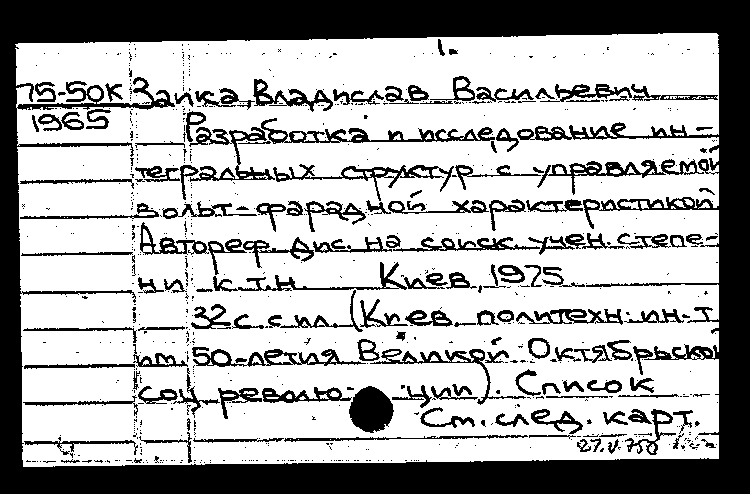 1.
75-50К Заика, Владислав Васильевич
1965 Разработка и исследование ин-
тегральных структур с управляемой
вольт-фарадной характеристикой.
Автореф. дис. на соиск. учен. степе-
ни к.т.н. Киев, 1975.
32с. с ил. (Киев. политехн. ин-т
им. 50-летия Великой Октябрьской
соц. револю-ции). Список
См. след. карт.
ч